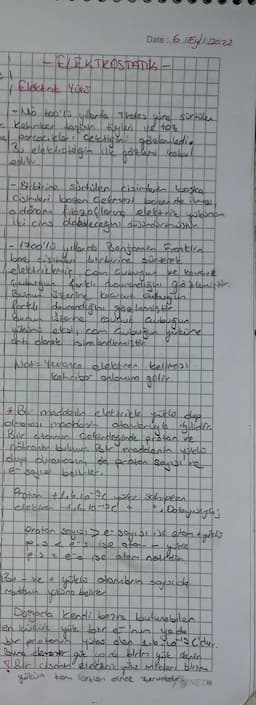 Date: 6 /Eyl/ 2022
- ELEKTROSTATİK -
Elektrik Yükü
- Mö 600'lü yıllarda Thales yüne sürtülen
kehribar taşının tüyleri ve toz
parçacıkları çektiğini gözlemledi.
Bu elektriğin ilk gözlemi kabul
edilir.
- Birbirine sürtülen cisimlerin başka
cisimleri bazen çekmesi bazen de itmesi,
o dönem filozoflarına elektrik yükünün
iki cins olabileceğini düşündürmüştür.
- 1700'lü yıllarda Benjamin Franklin
bazı cisimleri birbirine sürterek
elektriklenmiş, cam çubuğun ve kauçuk
çubuğun farklı davrandığını gözlemiştir.
Bunun üzerine kauçuk çubuğun
yüküne eksi, cam çubuğun yüküne
artı olarak isimlendirmiştir.
Not: Yunanca elektron kelimesi
kehribar anlamına gelir
* Bir maddenin elektrikle yüklü olup
olmaması maddenin atomlarıyla ilgilidir.
Bir atomun çekirdeğinde proton ve
nötronlar bulunur. Bir maddenin yüklü
olup olmamasını da proton sayısı ve
e- sayısı belirler.
Proton +1,6.10-19C yüke sahipken
elektron -1,6.10-19C
Proton sayısı > e- sayısı ise atom + yüklü
p.s < e-s ise atom - yüklü
p.s = e-s ise atom nötrdür.
- ve + yüklü atomların sayısıda
maddenin yükünü belirler
Doğada kendi başına bulunabilen
en küçük yük bir e-'nun yada
bir protonun yükü olan 1,6.10-19 C'dur.
Buna elemanter yük yada birim yük denir.